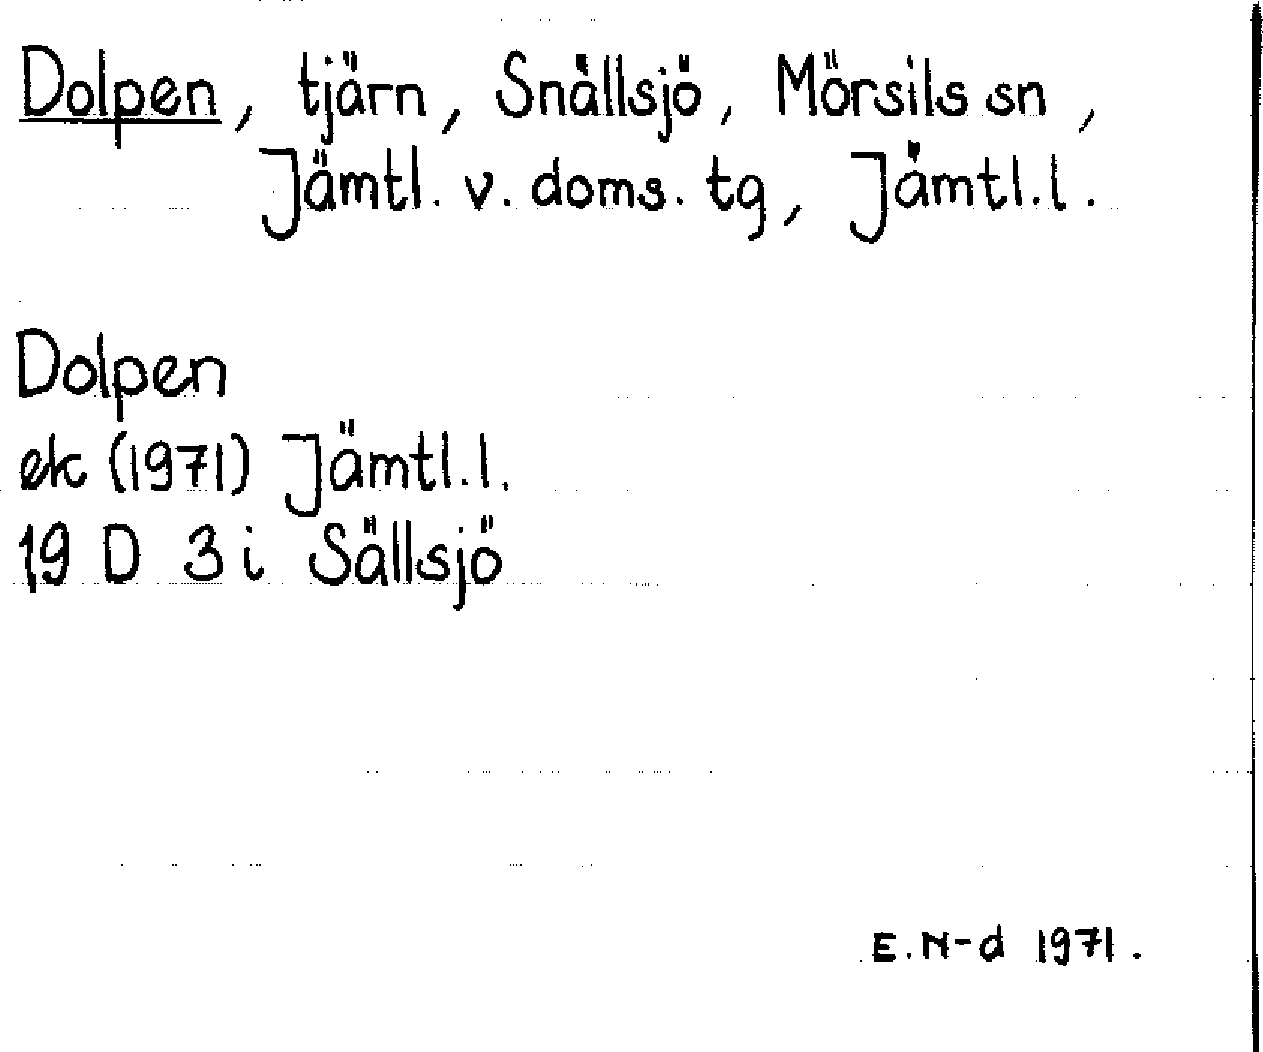 Dolpen, tjärn, Snällsjö, Mörsils sn,
Jämtl. v. doms. tg, Jämtl.l.
Dolpen
ek (1971) Jämtl.l.
19 D 3 i Sällsjö
E.N-d 1971.